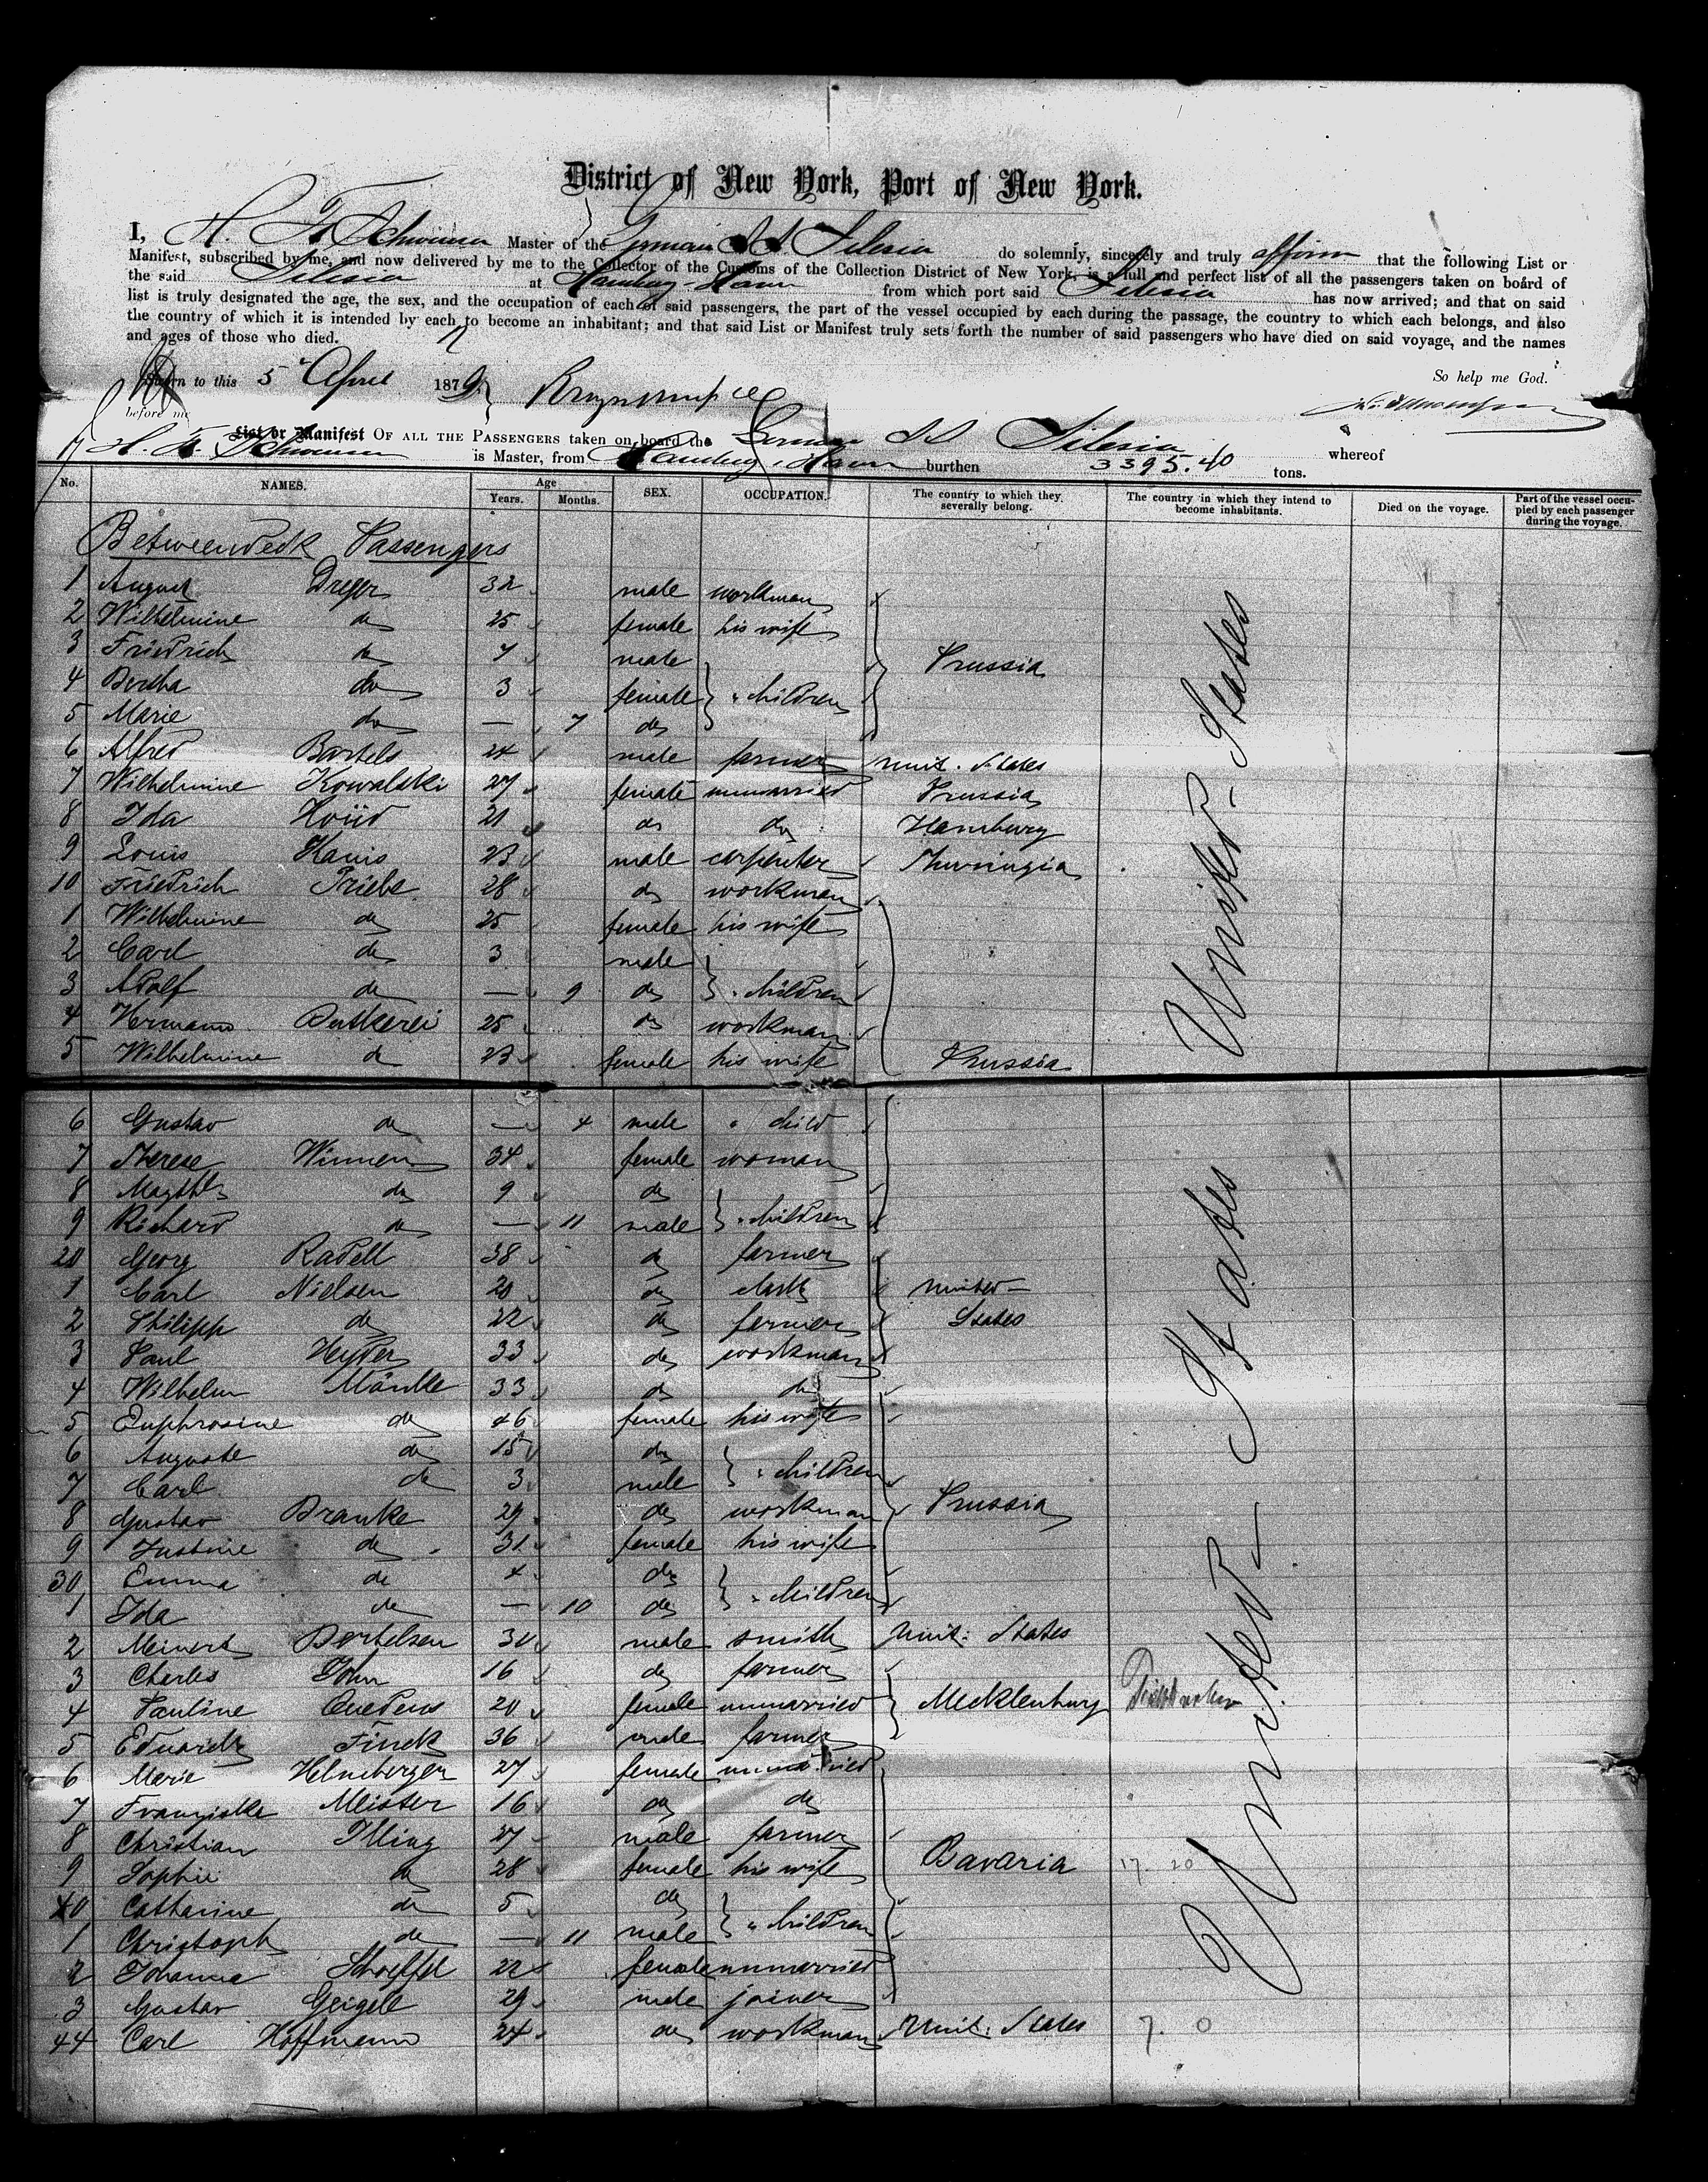 District of New York, Port of New York.
I, H. F. Schwensen Master of the German SS Silesia do solemnly, sincerely and truly affirm that the following List or
Manifest, subscribed by me, and now delivered by me to the Collector of the Customs of the Collection District of New York, is a full and perfect list of all the passengers taken on board of
the said Silesia at Hamburg-Havre from which port said Silesia has now arrived; and that on said
list is truly designated the age, the sex, and the occupation of each of said passengers, the part of the vessel occupied by each during the passage, the country to which each belongs, and also
the country of which it is intended by each to become an inhabitant; and that said List or Manifest truly sets forth the number of said passengers who have died on said voyage, and the names
and ages of those who died.
So help me God.
Sworn to this 5 April 1879
before me
List or Manifest OF ALL THE PASSENGERS taken on board the German SS Silesia whereof
H. F. is Master, from Hamburg, Havre burthen 3395.40 tons.
No. NAMES. Age Years. Months. SEX. OCCUPATION. The country to which they severally belong. The country in which they intend to become inhabitants. Died on the voyage. Part of the vessel occupied by each passenger during the voyage.
Betweendeck Passengers
1 August Dreger 32 male workman
2 Wilhelmine do 25 female his wife
3 Friedrich do 7 male Prussia
4 Bertha do 3 female " children
5 Marie do — 7 do
6 Alfred Bartels 24 male farmer Unit. States
7 Wilhelmine Kowalski 27 female unmarried Prussia
8 Ida 21 do do Hamburg
9 Louis Hanis 23 male carpenter Thuringia
10 Friedrich Priebe 28 do workman
1 Wilhelmine do 25 female his wife
2 Carl do 3 male
3 Adolf do — 9 do " children
4 Hermann 25 do workman
5 Wilhelmine do 23 female his wife Prussia
6 Gustav do — 4 male " child
7 Therese Winnen 34 female woman
8 do 9 do
9 Richard do — 11 male " children
20 Georg Radell 38 do farmer
1 Carl Nielsen 20 do clerk United-
2 Philipp do 22 do farmer States
3 Paul Heyder 33 do workman
4 Wilhelm 33 do do
5 Euphrosine do 46 female his wife
6 Auguste do 15 do
7 Carl do 3 male " children
8 Gustav Branke 29 do workman Prussia
9 Justine do 31 female his wife
30 Emma do 4 do
1 Ida do — 10 do " children
2 Meinert Bertelsen male smith Unit. States
3 Charles John 16 do farmer
4 Pauline Quedens 20 female unmarried Mecklenburg
5 Eduard Finck 36 male farmer
6 Marie Helmberger 27 female unmarried
7 Franziska Meister 16 do do
8 Christian Illing 27 male farmer
9 Sophie do 28 female his wife Bavaria 17. 20
40 Catharine do 5 do
1 Christoph do — 11 male " children
2 Johanna 22 female unmarried
3 Gustav Geigele 29 male joiner
44 Carl Hoffmann 24 do workman Unit. States 7. 0
United-States
United-States